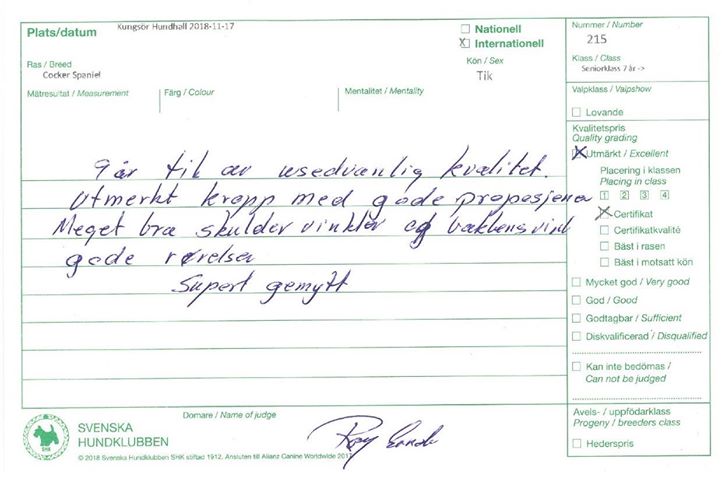 Plats/datum
Kungsör Hundhall 2018-11-17
Nationell
Internationell
Nummer / Number
215
Ras / Breed
Cocker Spaniel
Kön / Sex
Tik
Klass / Class
Seniorklass 7 år ->
Mätresultat / Measurement
Färg / Colour
Mentalitet / Mentality
Valpklass / Valpshow
Lovande
Kvalitetspris
Quality grading
Utmärkt / Excellent
Placering i klassen
Placing in class
1 2 3 4
Certifikat
Certifikatkvalité
Bäst i rasen
Bäst i motsatt kön
Mycket god / Very good
God / Good
Godtagbar / Sufficient
Diskvalificerad / Disqualified
Kan inte bedömas /
Can not be judged
Avels- / uppfödarklass
Progeny / breeders class
Hederspris
9 år tik av usedvanlig kvalitet.
Utmerkt kropp med gode proposjener
Meget bra skulder vinkler og
gode rørelser
Supert gemytt
Domare / Name of judge
Roy
SHK
SVENSKA
HUNDKLUBBEN
© 2018 Svenska Hundklubben SHK stiftad 1912. Ansluten till Alianz Canine Worldwide